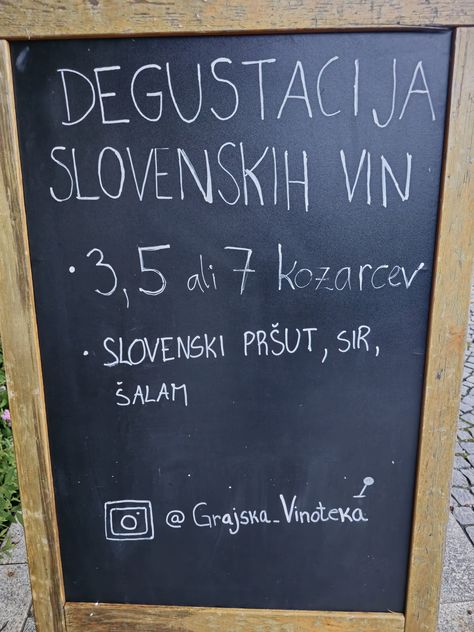 DEGUSTACIJA
SLOVENSKIH VIN
• 3, 5 ali 7 kozarcev
• SLOVENSKI PRŠUT, SIR,
ŠALAM
@Grajska_Vinoteka